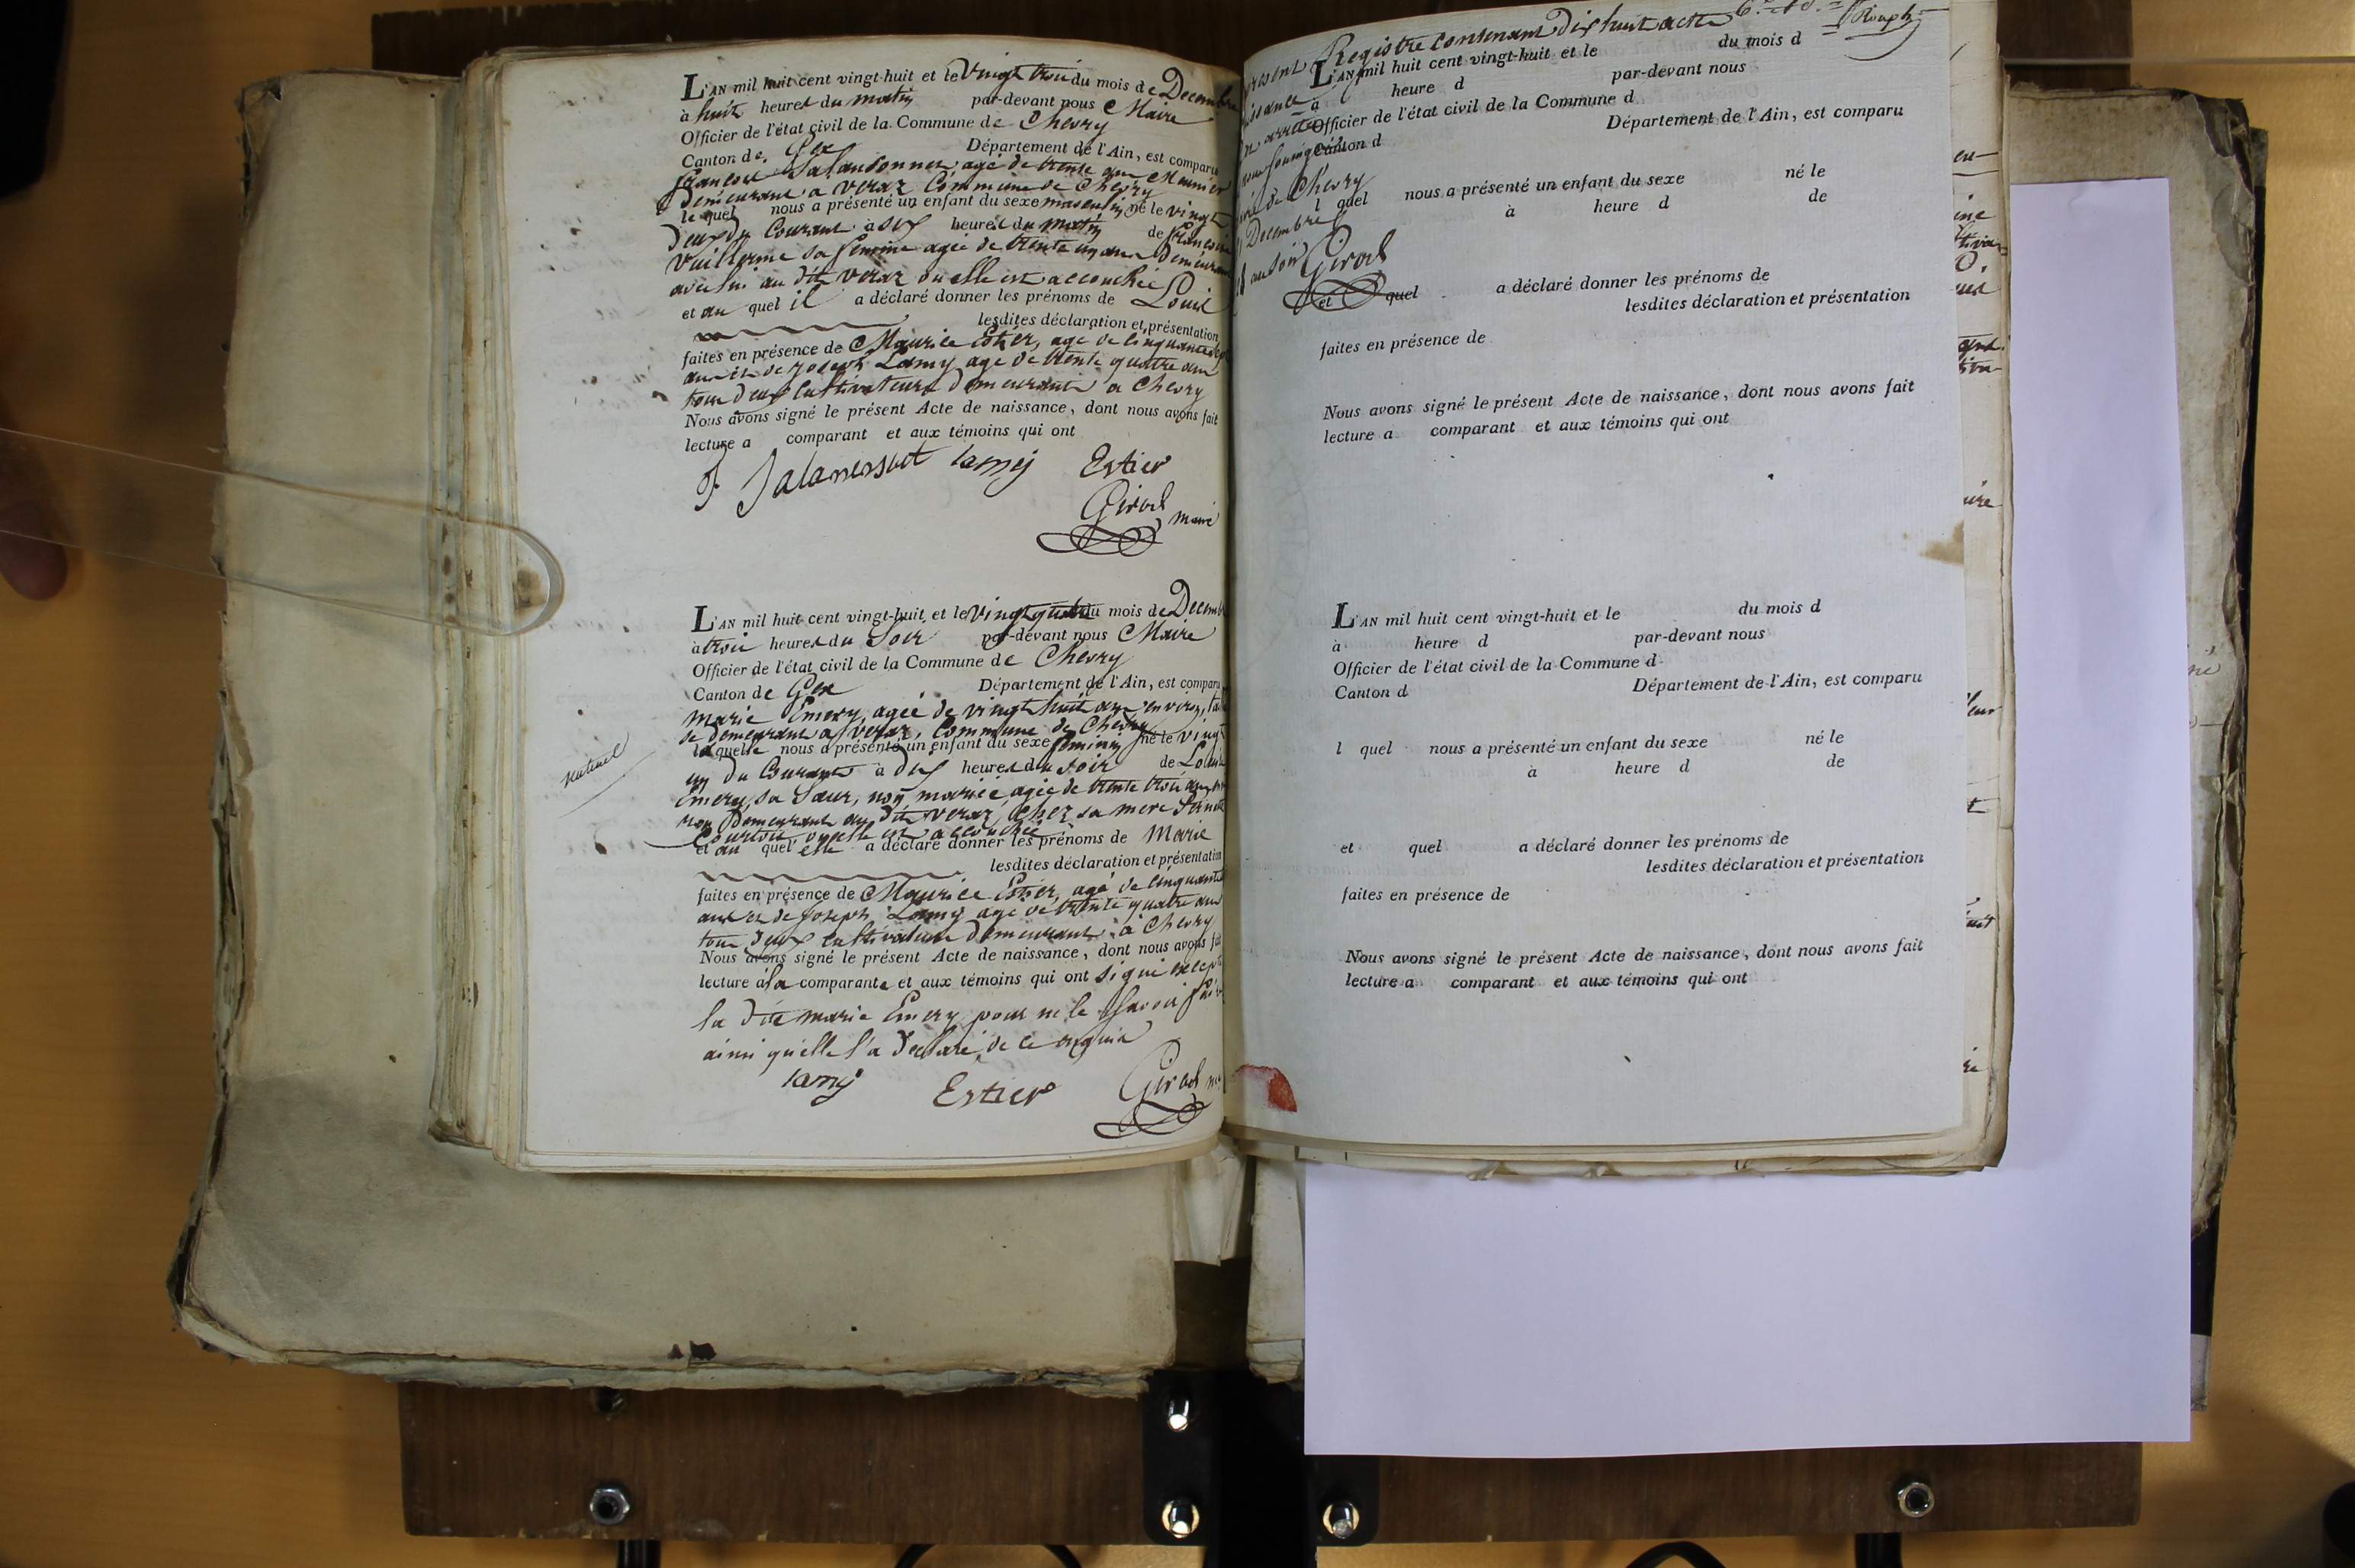 L'AN mil huit cent vingt-huit et le vingt trois du mois de Decembre
à huit heures du matin par-devant nous Maire
Officier de l'état civil de la Commune de Chevry
Canton de Gex Département de l'Ain, est comparu
françois agé de trente ans Meunier
Demeurant a veraz Commune de Chevry
le quel nous a présenté un enfant du sexe masculin né le vingt
deux du Courant à six heures du matin de françoise
Vuillerme sa femme agée de trente cinq ans Demeurant
avec lui au dit veraz ou elle est accouchée
et au quel il a déclaré donner les prénoms de Louis
lesdites déclaration et présentation
faites en présence de Maurice Estier, agé de cinquante
ans et de joseph Lamy agé de trente quatre ans
tous deux Cultivateurs demeurants a Chevry
Nous avons signé le présent Acte de naissance, dont nous avons fait
lecture a comparant et aux témoins qui ont
lamy Estier
Girod maire
L'AN mil huit cent vingt-huit et le vingt quatre du mois de Decemb
à trois heures du Soir par-devant nous Maire
Officier de l'état civil de la Commune de Chevry
Canton de Gex Département de l'Ain, est comparu
marie Emery, agée de vingt huit ans environ,
demeurant a veraz, Commune de Chevry
laquelle nous a présenté un enfant du sexe feminin né le vingt
un du Courant à dix heures du soir de Louise
Emery, sa Sœur, non mariée, agée de trente trois ans
Demeurant au dit veraz, chez sa mere
Courtois, ou elle est accouchée
naturel
et au quel elle a déclaré donner les prénoms de Marie
lesdites déclaration et présentation
faites en présence de Maurice Estier, agé de cinquante
ans et de joseph Lamy agé de trente quatre ans
tous deux cultivateurs demeurants à Chevry
Nous avons signé le présent Acte de naissance, dont nous avons fait
lecture à la comparante et aux témoins qui ont signé excepté
la dite marie Emery pour ne le Savoir faire
ainsi qu'elle l'a declaré, de ce requise
lamy Estier Girod
Registre contenant Dix huit actes
L'AN mil huit cent vingt-huit et le du mois d
à heure d par-devant nous
Officier de l'état civil de la Commune d
Canton d Département de l'Ain, est comparu
de Chevry
l quel nous a présenté un enfant du sexe né le
à heure d de
Decembre
au soir Girod
et quel a déclaré donner les prénoms de
lesdites déclaration et présentation
faites en présence de
Nous avons signé le présent Acte de naissance, dont nous avons fait
lecture a comparant et aux témoins qui ont
L'AN mil huit cent vingt-huit et le du mois d
à heure d par-devant nous
Officier de l'état civil de la Commune d
Canton d Département de l'Ain, est comparu
l quel nous a présenté un enfant du sexe né le
à heure d de
et quel a déclaré donner les prénoms de
lesdites déclaration et présentation
faites en présence de
Nous avons signé le présent Acte de naissance, dont nous avons fait
lecture a comparant et aux témoins qui ont